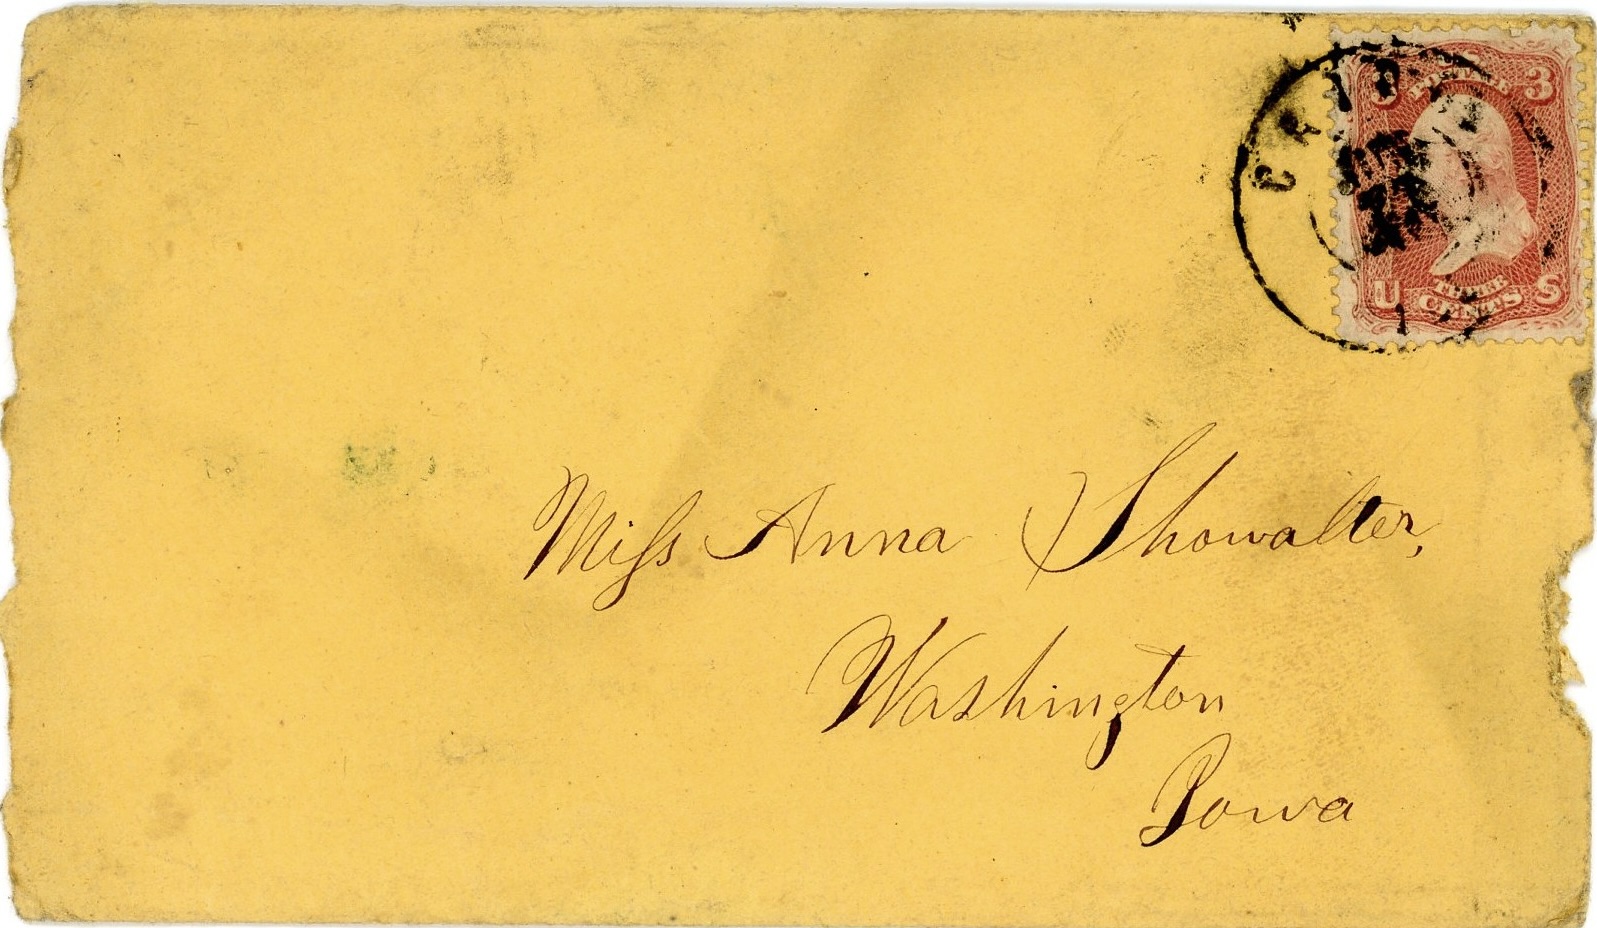 3 POSTAGE 3
U THREE CENTS S
Miss Anna Showalter,
Washington
Iowa